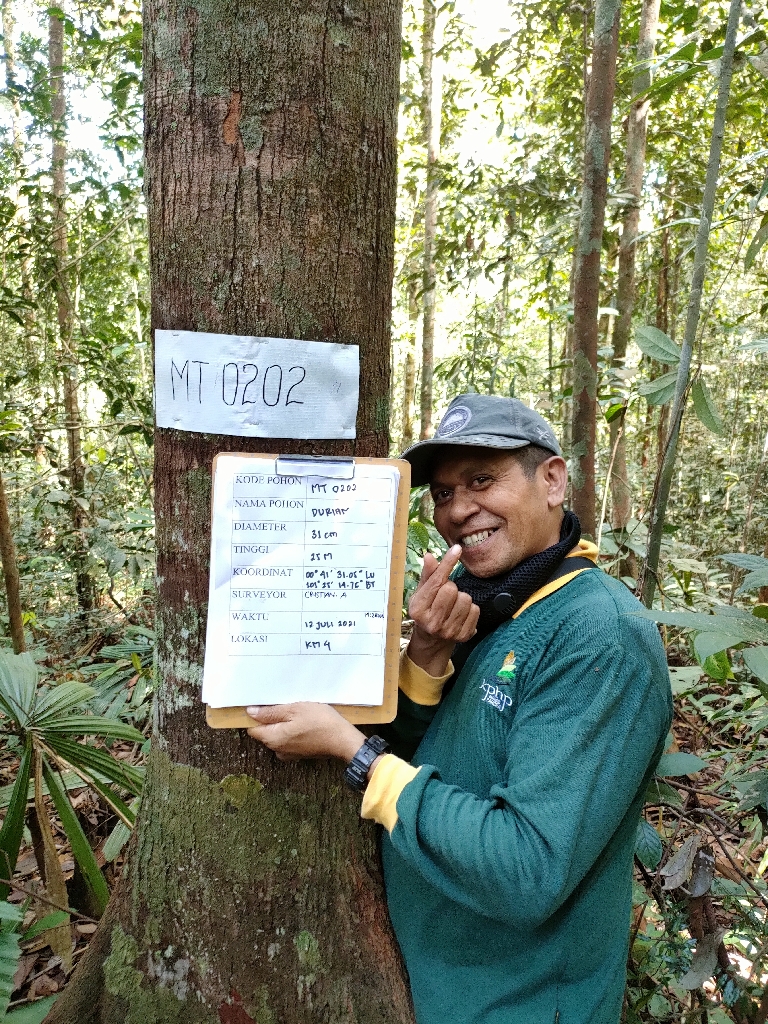 MT 0202
KODE POHON MT 0202
NAMA POHON DURIAN
DIAMETER 31 cm
TINGGI 25 M
KOORDINAT 00° 41' 31.05" LU
101° 25' 14.76" BT
SURVEYOR CRISTIAN. A
WAKTU 12 JULI 2021
LOKASI KM 4
kphp